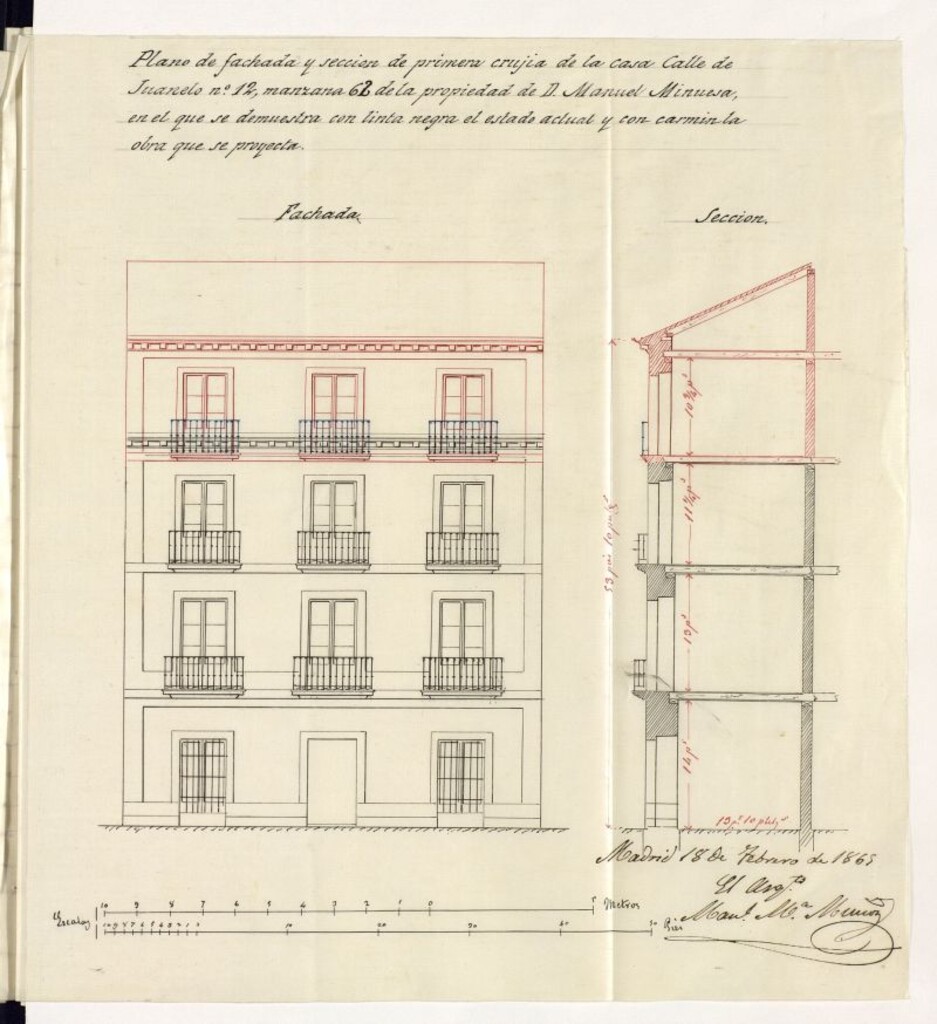 Plano de fachada y seccion de primera crujia de la casa Calle de
Juanelo nº 12, manzana 62 de la propiedad de D. Manuel Minuesa,
en el que se demuestra con tinta negra el estado actual y con carmin la
obra que se proyecta.
Fachada.
Seccion.
10 ¾ pˢ
11 ½ pˢ
53 pies 10 pulgˢ
13 pˢ
14 pˢ
13 pˢ 10 pulgˢ
Madrid 18 de Febrero de 1865
El Arqᵗᵒ
Manl. Mª Muñoz
Escalas
10 9 8 7 6 5 4 3 2 1 0 5 Metros
10 9 8 7 6 5 4 3 2 1 10 20 30 40 50 Pies